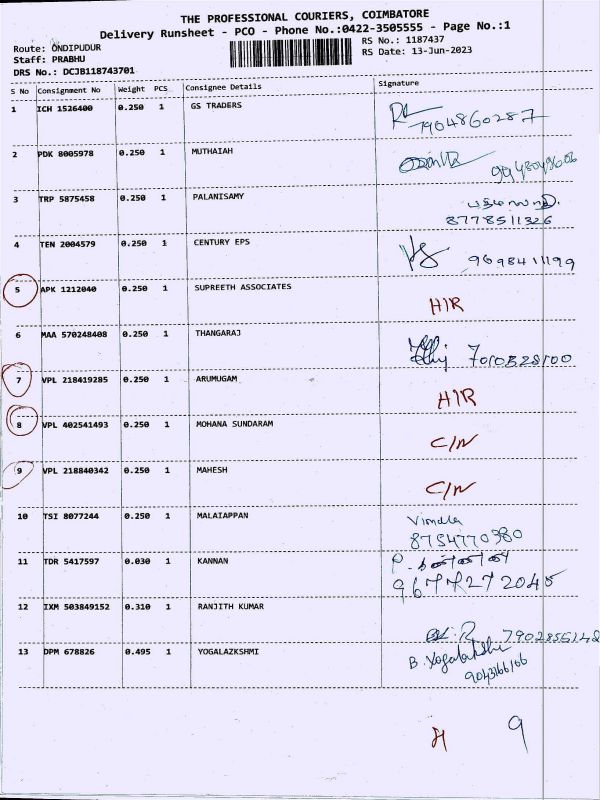 THE PROFESSIONAL COURIERS, COIMBATORE
Delivery Runsheet - PCO - Phone No.:0422-3505555 - Page No.:1
Route: ONDIPUDUR
RS No.: 1187437
Staff: PRABHU
RS Date: 13-Jun-2023
DRS No.: DCJB118743701
S No Consignment No Weight PCS Consignee Details Signature
1 ICH 1526400 0.250 1 GS TRADERS
7904860287
2 PDK 8005978 0.250 1 MUTHAIAH
3 TRP 5875458 0.250 1 PALANISAMY
8778511326
4 TEN 2004579 0.250 1 CENTURY EPS
9698411199
5 APK 1212040 0.250 1 SUPREETH ASSOCIATES
H/R
6 MAA 570248408 0.250 1 THANGARAJ
7 VPL 218419285 0.250 1 ARUMUGAM
H/R
8 VPL 402541493 0.250 1 MOHANA SUNDARAM
C/N
9 VPL 218840342 0.250 1 MAHESH
C/N
10 TSI 8077244 0.250 1 MALAIAPPAN
Vimala
8754770980
11 TDR 5417597 0.030 1 KANNAN
P. கண்ணன்
9677272045
12 IXM 503849152 0.310 1 RANJITH KUMAR
13 DPM 678826 0.495 1 YOGALAZKSHMI
B. Yogalakshmi
9043166166
9